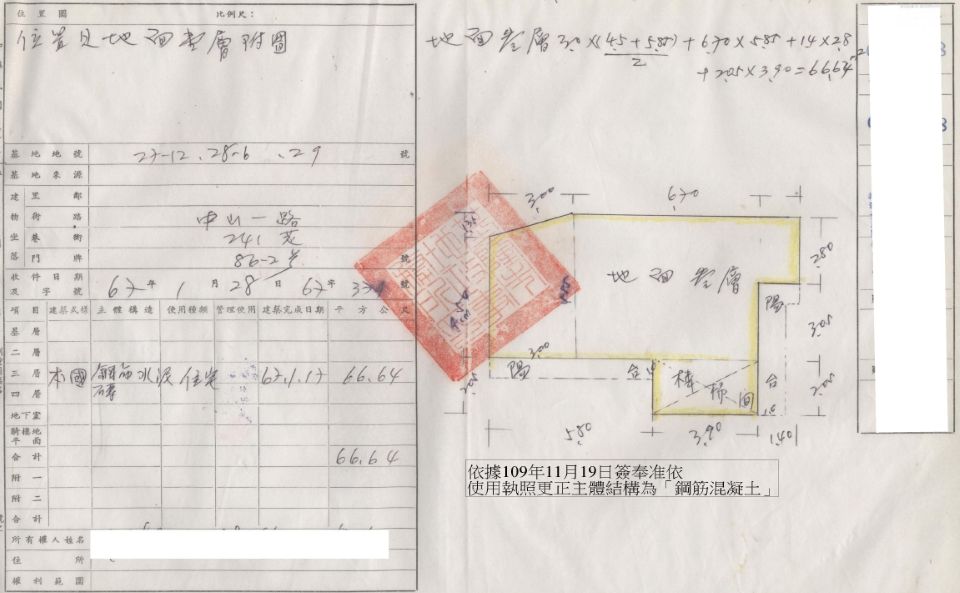 位置圖 比例尺：
位置及地面叁層附圖
基地地號 27-12、28-6、29 號
基地來源
建里鄰
物街路 中山一路
坐巷衖 241巷
落門牌 86-2號
收件日期
及字號 67年1月28日67年 號
項目 建築式樣 主體構造 使用種類 管理使用 建築完成日期 平方公尺
基層
二層
三層 本國 鋼筋水泥磚 住宅 67.1.17 66.64
四層
地下室
騎樓地
平面
合計 66.64
附一
附二
合計
所有權人姓名
住所
權利範圍
地面叁層 3.0×(4.5+5.85)/2+6.70×5.85+1.4×2.8
+2.05×3.90=66.64
3.00 6.70
1.35
4.50 5.85
地面叁層
2.80
3.05
2.05
陽台
3.00
陽台
樓梯間
2.05
5.80 3.90 1.40
依據109年11月19日簽奉准依
使用執照更正主體結構為「鋼筋混凝土」